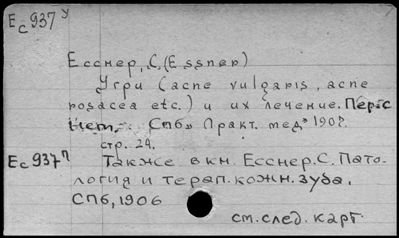 Ес937 у
Есснер, С. (Essner)
Угри (acne vulgaris, acne
rosacea etc.) и их лечение. Перс
Нет. СПб. "Практ. мед" 190?.
стр. 24.
Ес937п Также в кн. Есснер. С. Пато-
логия и терап. кожн. зуда.
СПб, 1906
см. след. карт